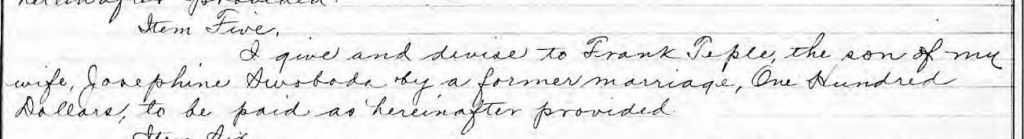 hereinafter provided.
Item Five.
I give and devise to Frank Teple, the son of my
wife, Josephine Swoboda by a former marriage, One Hundred
Dollars, to be paid as hereinafter provided
Item Six